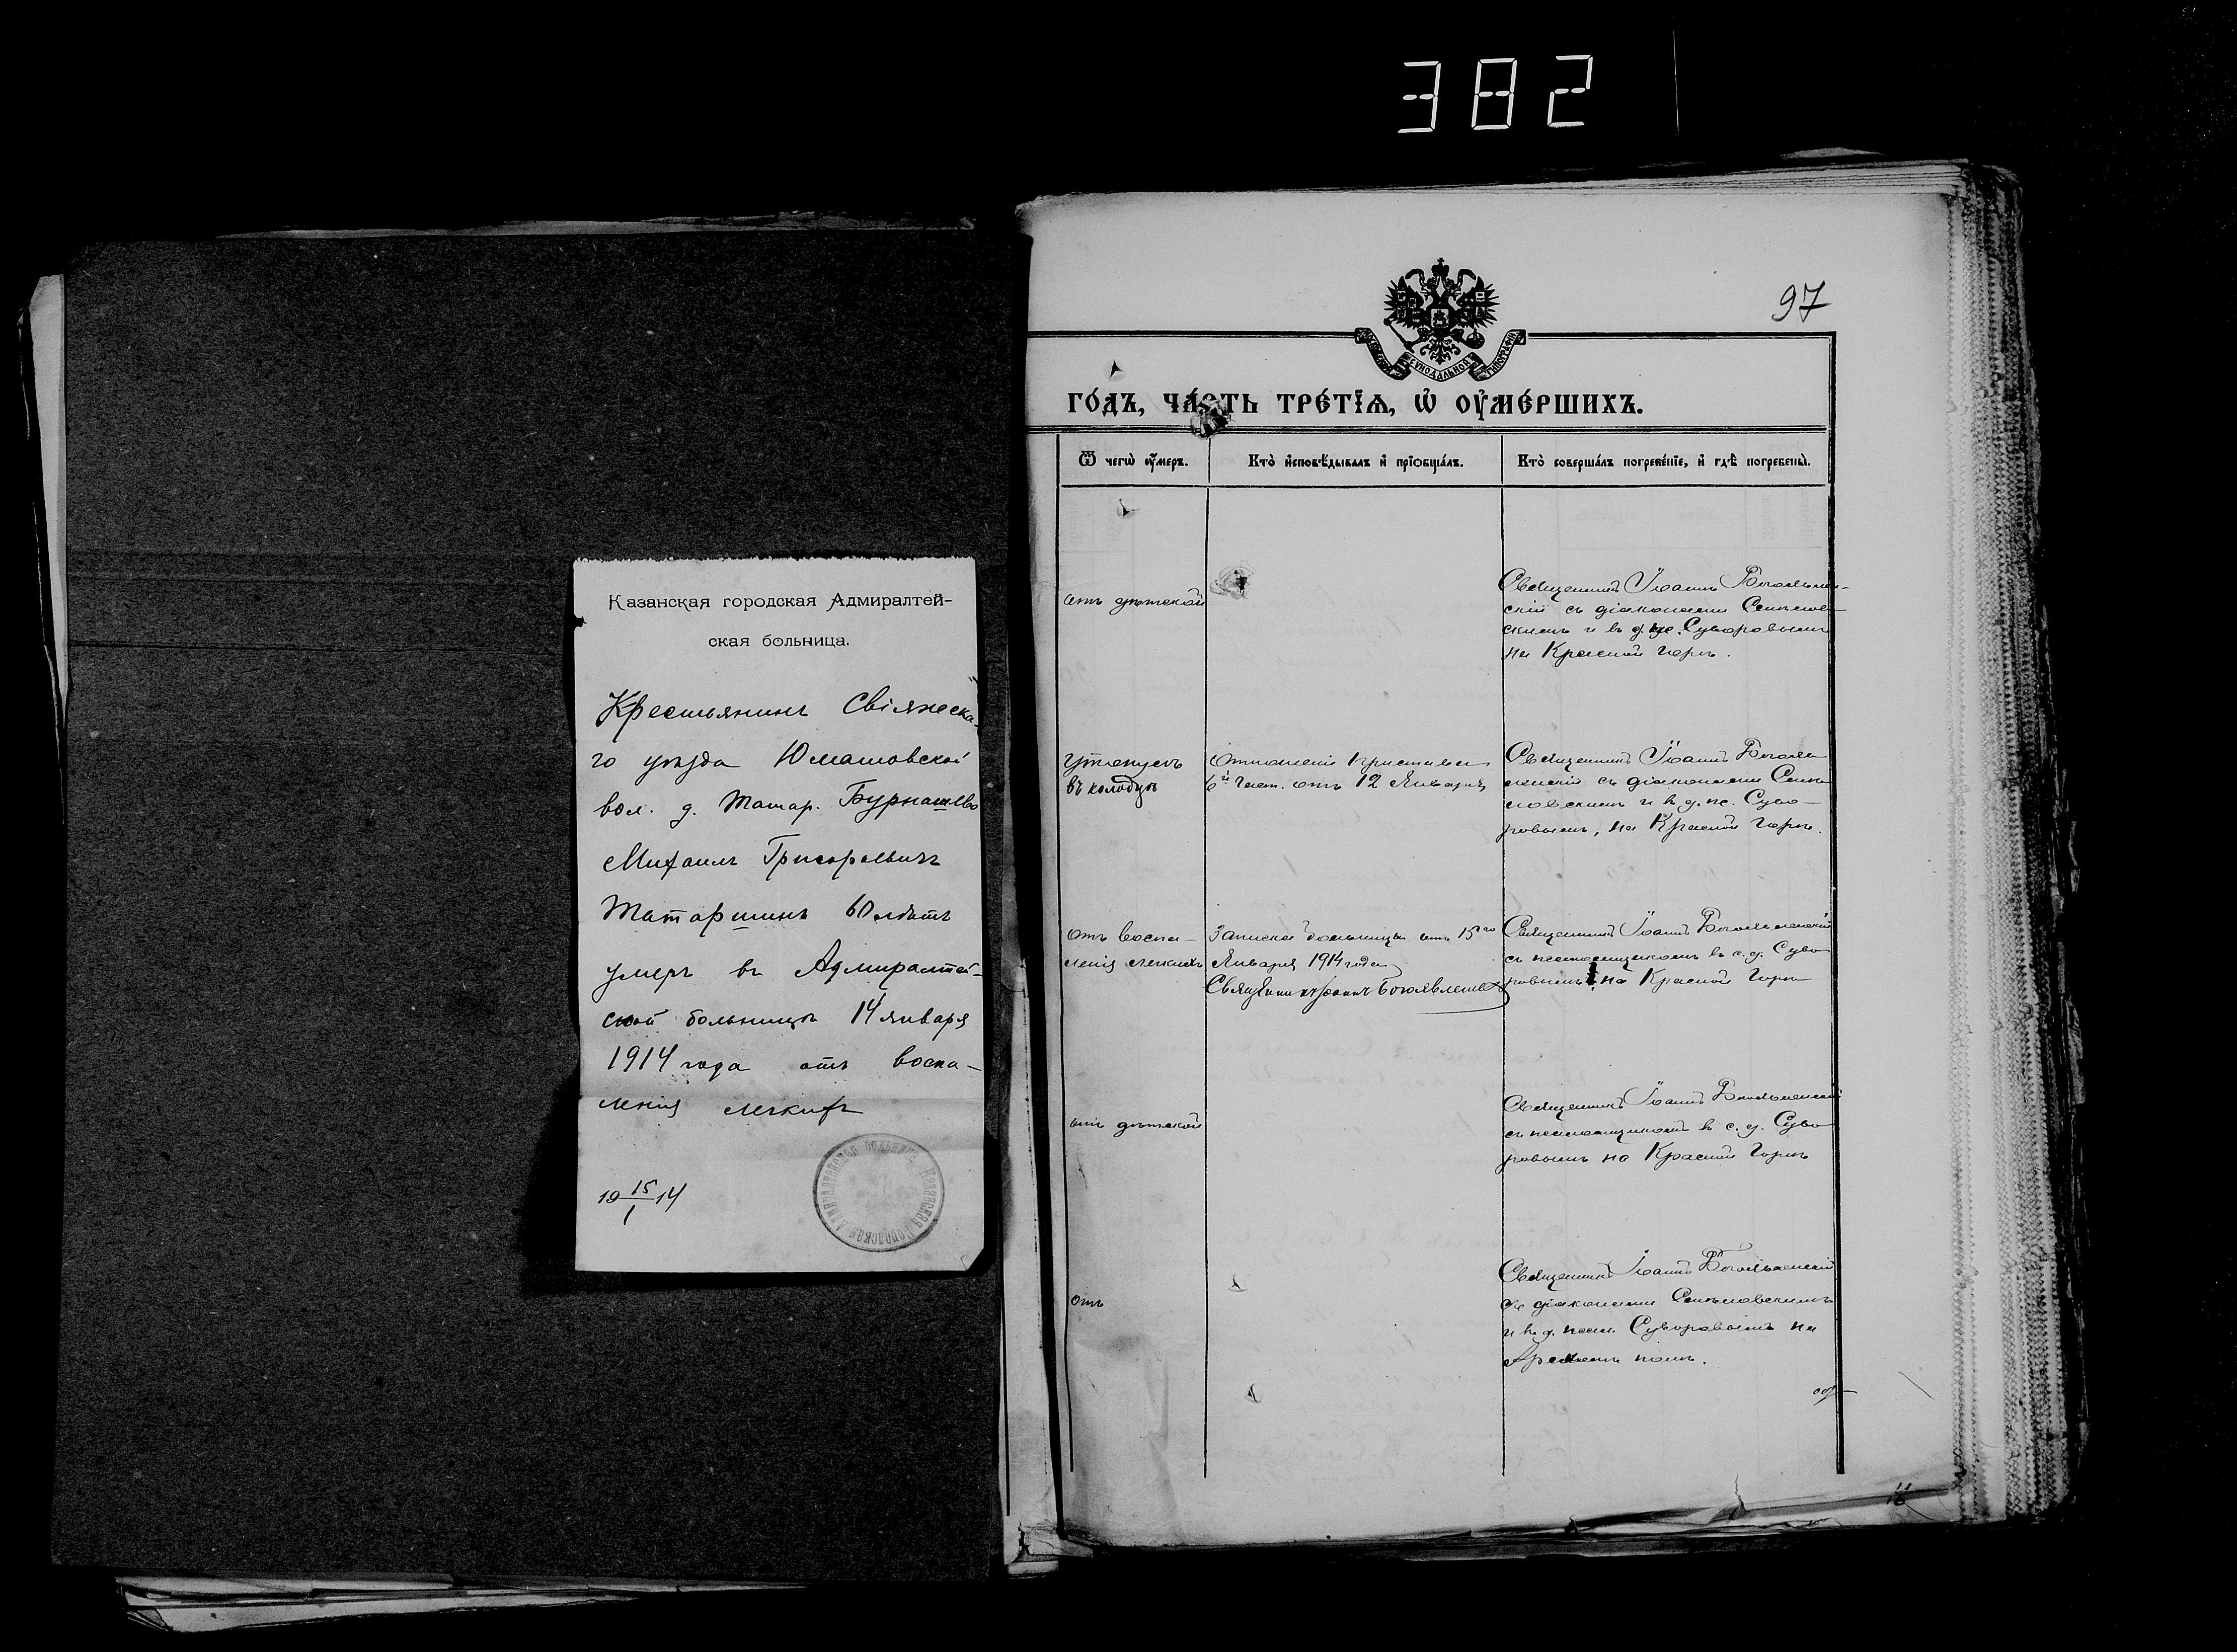 382
Казанская городская Адмиралтей-
ская больница.
Крестьянинъ Свіяжска-
го уѣзда Юматовской
вол. д. Татар. Бурнашево
Михаилъ Григорьевичъ
Татаршинъ 60 лѣтъ
умеръ въ Адмиралтей-
ской больницѣ 14 января
1914 года отъ воспа-
ленія легкихъ
19 15/I 14
97
МОСКОВСКОЙ СѴНОДАЛЬНОЙ ТИПОГРАФІИ
ГО́ДЪ, ЧА́СТЬ ТРЕ́ТЇѦ, Ѡ҆ ОУ҆МЕ́РШИХЪ.
Ѿ чегѡ̀ оу҆́меръ.
Кто̀ и҆сповѣ́дывалъ и҆ прїѡбща́лъ.
Кто̀ соверша́лъ погребе́нїе, и҆ гдѣ̀ погребены̀.
отъ дѣтской
Священникъ Іоаннъ Богоявлен-
скій съ діаконами
и в. д. пс. Суворовымъ
на Красной Горкѣ.
Утонулъ
въ колодцѣ
Отношеніе Пристава
6й част. отъ 12 Января
Священникъ Іоаннъ Богояв-
ленскій съ діаконами
и в. д. пс. Суво-
ровымъ, на Красной Горкѣ.
отъ воспа-
ленія легкихъ
Записка больницы отъ 15го
Января 1914 года
Священникъ Іоаннъ Богоявленскій
Священникъ Іоаннъ Богоявленскій
съ псаломщикомъ в. с. д. Суво
ровымъ на Красной Горкѣ
отъ дѣтской
Священникъ Іоаннъ Богоявленскій
съ псаломщикомъ в с. д. Суво
ровымъ на Красной Горкѣ
отъ
Священникъ Іоаннъ Богоявленскій
съ діаконами
и в. д. псал. Суворовымъ на
Арскомъ полѣ.